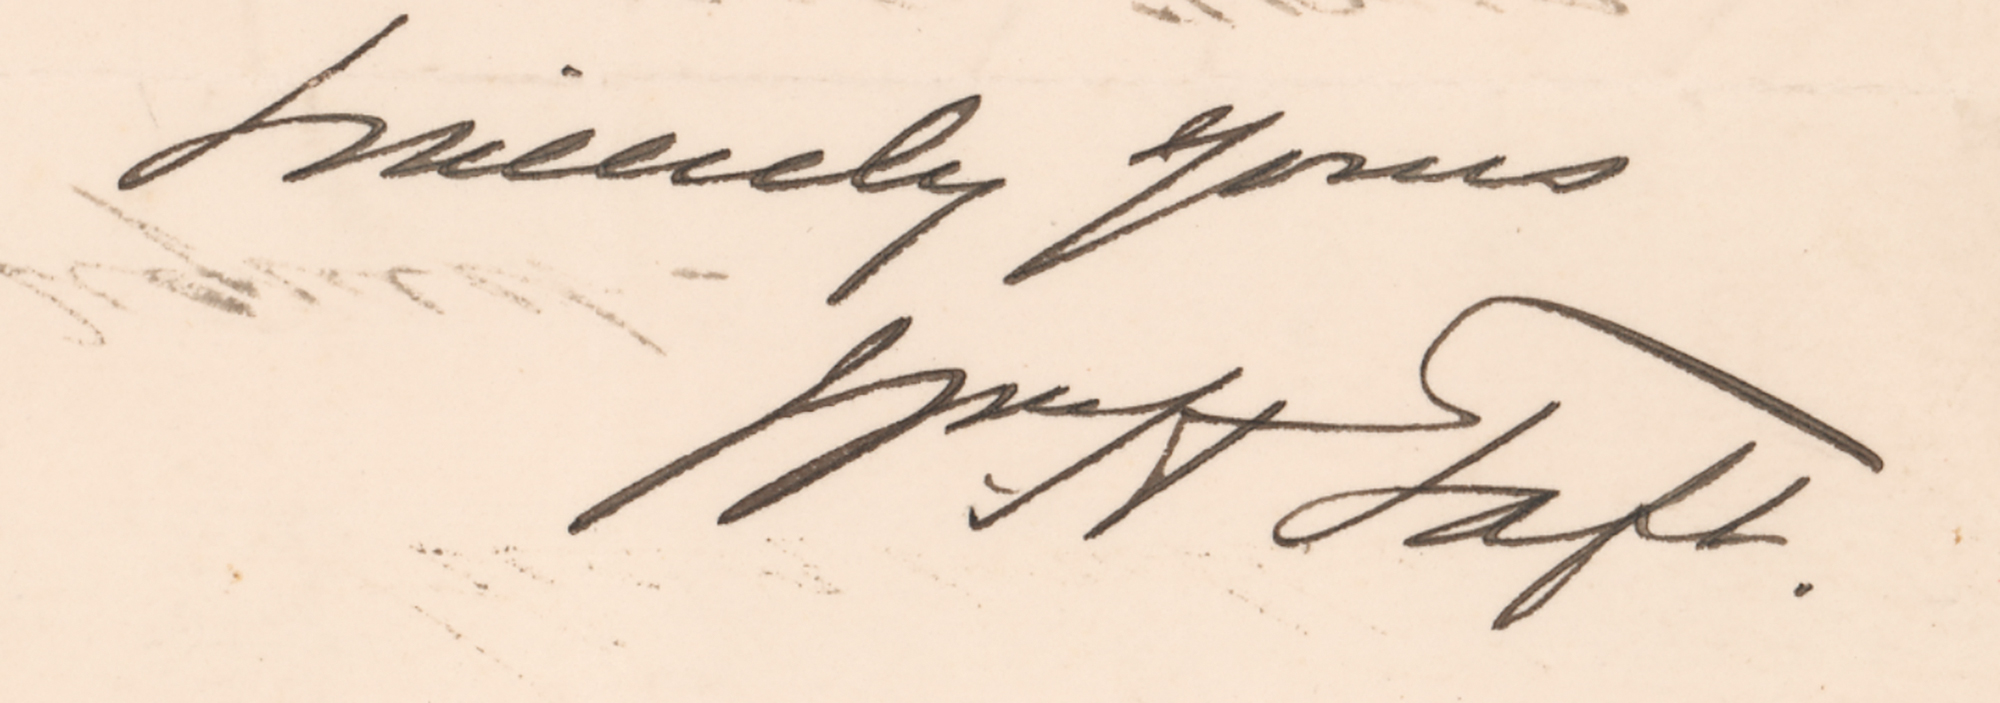 Sincerely Yours
Wm H Taft.